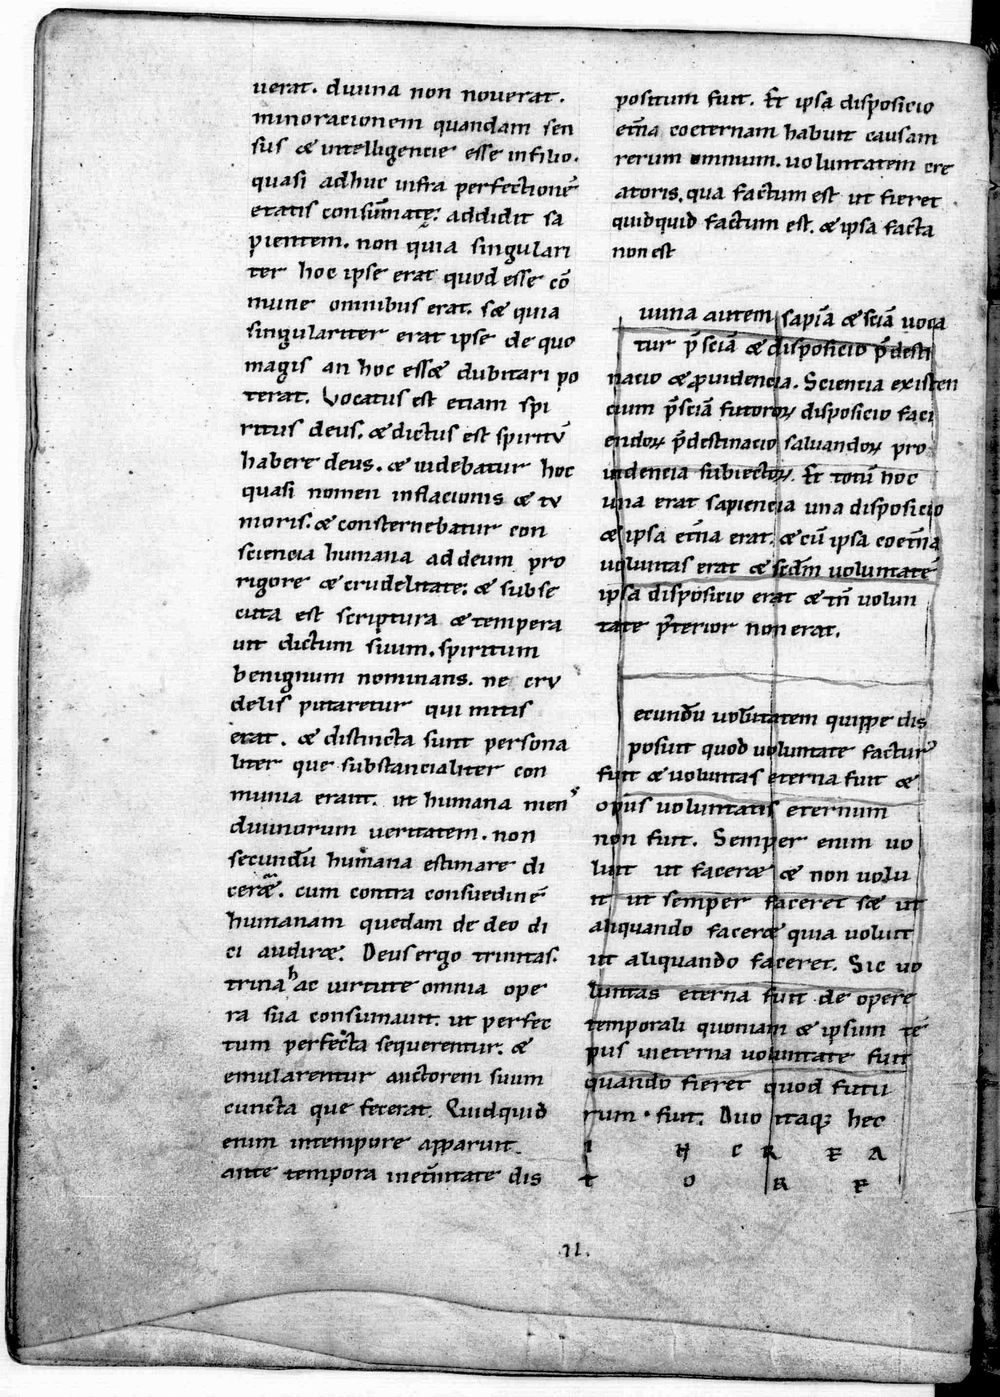 uerat. diuina non nouerat.
minoracionem quandam sen
sus & intelligencie esse infilio.
quasi adhuc infra perfectionē
etatis consūmatę. addidit sa
pientem. non quia singulari
ter hoc ipse erat quod esse cō
mune omnibus erat. s& quia
singulariter erat ipse de quo
magis an hoc ess& dubitari po
terat. Vocatus est etiam spi
ritus deus. & dictus est spiritū
habere deus. & uidebatur hoc
quasi nomen inflacionis & tu
moris. & consternebatur con
sciencia humana ad deum pro
rigore & crudelitate. & subse
cuta est scriptura & tempera
uit dictum suum. spiritum
benignum nominans. ne cru
delis putaretur qui mitis
erat. & distincta sunt persona
liter que substancialiter con
munia erant. ut humana mens
diuinorum ueritatem. non
secundū humana estimare di
cer&. cum contra consuedinē
humanam quedam de deo di
ci audir&. Deus ergo trinitas.
trina hac uirtute omnia ope
ra sua consumauit. ut perfec
tum perfecta sequerentur. &
emularentur auctorem suum
cuncta que fecerat. Quidquid
enim intempore apparuit.
ante tempora inet̄nitate dis
positum fuit. Et ipsa disposicio
et̄na coeternam habuit causam
rerum omnium. uoluntatem cre
atoris. qua factum est ut fieret
quidquid factum est. & ipsa facta
non est
iuina autem sapiā & sciā uoca
tur p̄sciā & disposicio p̄desti
nacio & ꝓuidencia. Sciencia existen
cium p̄sciā futuroꝝ disposicio faci
endoꝝ p̄destinacio saluandoꝝ pro
uidencia subiectoꝝ. Et totū hoc
una erat sapiencia una disposicio
& ipsa et̄na erat. & cū ipsa coet̄na
uoluntas erat & scdm̄ uoluntatē
ipsa disposicio erat & tn̄ uolun
tate p̄terior non erat.
ecundū uolūtatem quippe dis
posuit quod uoluntate facturꝰ
fuit & uoluntas eterna fuit &
opus uoluntatis eternum
non fuit. Semper enim uo
luit ut facer& & non uolu
it ut semper faceret s& ut
aliquando facer& quia uoluit
ut aliquando faceret. Sic uo
luntas eterna fuit de opere
temporali quoniam & ipsum tē
pus ineterna uoluntate fuit
quando fieret quod futu
rum fuit. Duo itaqꝫ hec
I H C R E A
T O R E
11.